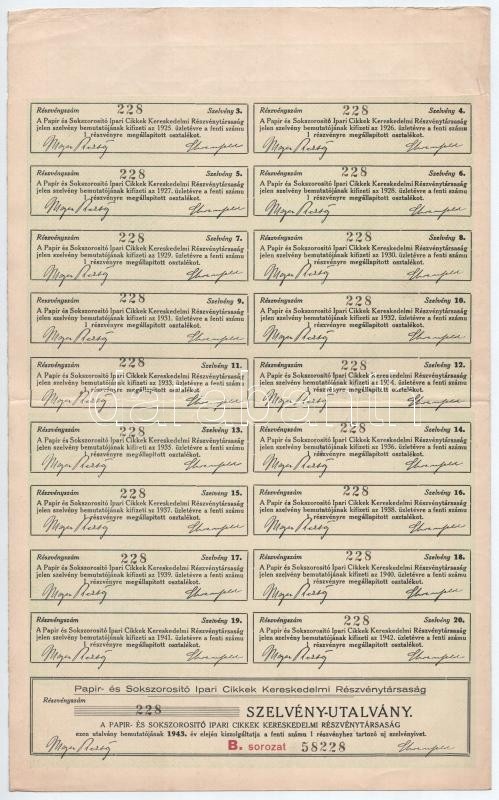 Részvényszám 228 Szelvény 3.
A Papir és Sokszorositó Ipari Cikkek Kereskedelmi Részvénytársaság
jelen szelvény bemutatójának kifizeti az 1925. üzletévre a fenti számu
1 részvényre megállapitott osztalékot.
Részvényszám 228 Szelvény 4.
A Papir és Sokszorositó Ipari Cikkek Kereskedelmi Részvénytársaság
jelen szelvény bemutatójának kifizeti az 1926. üzletévre a fenti számu
1 részvényre megállapitott osztalékot.
Részvényszám 228 Szelvény 5.
A Papir és Sokszorositó Ipari Cikkek Kereskedelmi Részvénytársaság
jelen szelvény bemutatójának kifizeti az 1927. üzletévre a fenti számu
1 részvényre megállapitott osztalékot.
Részvényszám 228 Szelvény 6.
A Papir és Sokszorositó Ipari Cikkek Kereskedelmi Részvénytársaság
jelen szelvény bemutatójának kifizeti az 1928. üzletévre a fenti számu
1 részvényre megállapitott osztalékot.
Részvényszám 228 Szelvény 7.
A Papir és Sokszorositó Ipari Cikkek Kereskedelmi Részvénytársaság
jelen szelvény bemutatójának kifizeti az 1929. üzletévre a fenti számu
1 részvényre megállapitott osztalékot.
Részvényszám 228 Szelvény 8.
A Papir és Sokszorositó Ipari Cikkek Kereskedelmi Részvénytársaság
jelen szelvény bemutatójának kifizeti az 1930. üzletévre a fenti számu
1 részvényre megállapitott osztalékot.
Részvényszám 228 Szelvény 9.
A Papir és Sokszorositó Ipari Cikkek Kereskedelmi Részvénytársaság
jelen szelvény bemutatójának kifizeti az 1931. üzletévre a fenti számu
1 részvényre megállapitott osztalékot.
Részvényszám 228 Szelvény 10.
A Papir és Sokszorositó Ipari Cikkek Kereskedelmi Részvénytársaság
jelen szelvény bemutatójának kifizeti az 1932. üzletévre a fenti számu
1 részvényre megállapitott osztalékot.
Részvényszám 228 Szelvény 11.
A Papir és Sokszorositó Ipari Cikkek Kereskedelmi Részvénytársaság
jelen szelvény bemutatójának kifizeti az 1933. üzletévre a fenti számu
1 részvényre megállapitott osztalékot.
Részvényszám 228 Szelvény 12.
A Papir és Sokszorositó Ipari Cikkek Kereskedelmi Részvénytársaság
jelen szelvény bemutatójának kifizeti az 1934. üzletévre a fenti számu
1 részvényre megállapitott osztalékot.
Részvényszám 228 Szelvény 13.
A Papir és Sokszorositó Ipari Cikkek Kereskedelmi Részvénytársaság
jelen szelvény bemutatójának kifizeti az 1935. üzletévre a fenti számu
1 részvényre megállapitott osztalékot.
Részvényszám 228 Szelvény 14.
A Papir és Sokszorositó Ipari Cikkek Kereskedelmi Részvénytársaság
jelen szelvény bemutatójának kifizeti az 1936. üzletévre a fenti számu
1 részvényre megállapitott osztalékot.
Részvényszám 228 Szelvény 15.
A Papir és Sokszorositó Ipari Cikkek Kereskedelmi Részvénytársaság
jelen szelvény bemutatójának kifizeti az 1937. üzletévre a fenti számu
1 részvényre megállapitott osztalékot.
Részvényszám 228 Szelvény 16.
A Papir és Sokszorositó Ipari Cikkek Kereskedelmi Részvénytársaság
jelen szelvény bemutatójának kifizeti az 1938. üzletévre a fenti számu
1 részvényre megállapitott osztalékot.
Részvényszám 228 Szelvény 17.
A Papir és Sokszorositó Ipari Cikkek Kereskedelmi Részvénytársaság
jelen szelvény bemutatójának kifizeti az 1939. üzletévre a fenti számu
1 részvényre megállapitott osztalékot.
Részvényszám 228 Szelvény 18.
A Papir és Sokszorositó Ipari Cikkek Kereskedelmi Részvénytársaság
jelen szelvény bemutatójának kifizeti az 1940. üzletévre a fenti számu
1 részvényre megállapitott osztalékot.
Részvényszám 228 Szelvény 19.
A Papir és Sokszorositó Ipari Cikkek Kereskedelmi Részvénytársaság
jelen szelvény bemutatójának kifizeti az 1941. üzletévre a fenti számu
1 részvényre megállapitott osztalékot.
Részvényszám 228 Szelvény 20.
A Papir és Sokszorositó Ipari Cikkek Kereskedelmi Részvénytársaság
jelen szelvény bemutatójának kifizeti az 1942. üzletévre a fenti számu
1 részvényre megállapitott osztalékot.
Papir- és Sokszorositó Ipari Cikkek Kereskedelmi Részvénytársaság
Részvényszám
228 SZELVÉNY-UTALVÁNY.
A PAPIR- ÉS SOKSZOROSITÓ IPARI CIKKEK KERESKEDELMI RÉSZVÉNYTÁRSASÁG
ezen utalvány bemutatójának 1943. év elején kiszolgáltatja a fenti számu 1 részvényhez tartozó uj szelvényivet.
B. sorozat 58228